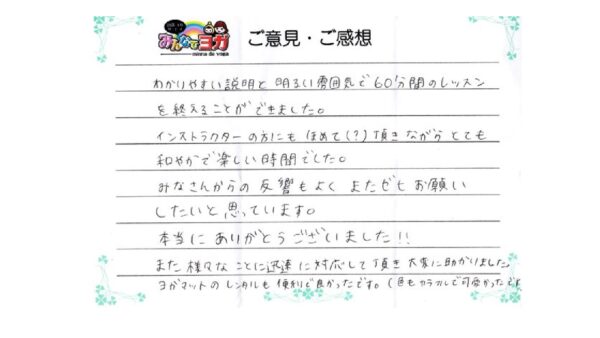 みんなでヨガ
minna de yoga
ご意見・ご感想
わかりやすい説明と明るい雰囲気で60分間のレッスン
を終えることができました。
インストラクターの方にもほめて(?)頂きながらとても
和やかで楽しい時間でした。
みなさんからの反響もよくまたぜひお願い
したいと思っています。
本当にありがとうございました!!
また様々なことに迅速に対応して頂き大変に助かりました。
ヨガマットのレンタルも便利で良かったです。(色もカラフルで可愛かったです